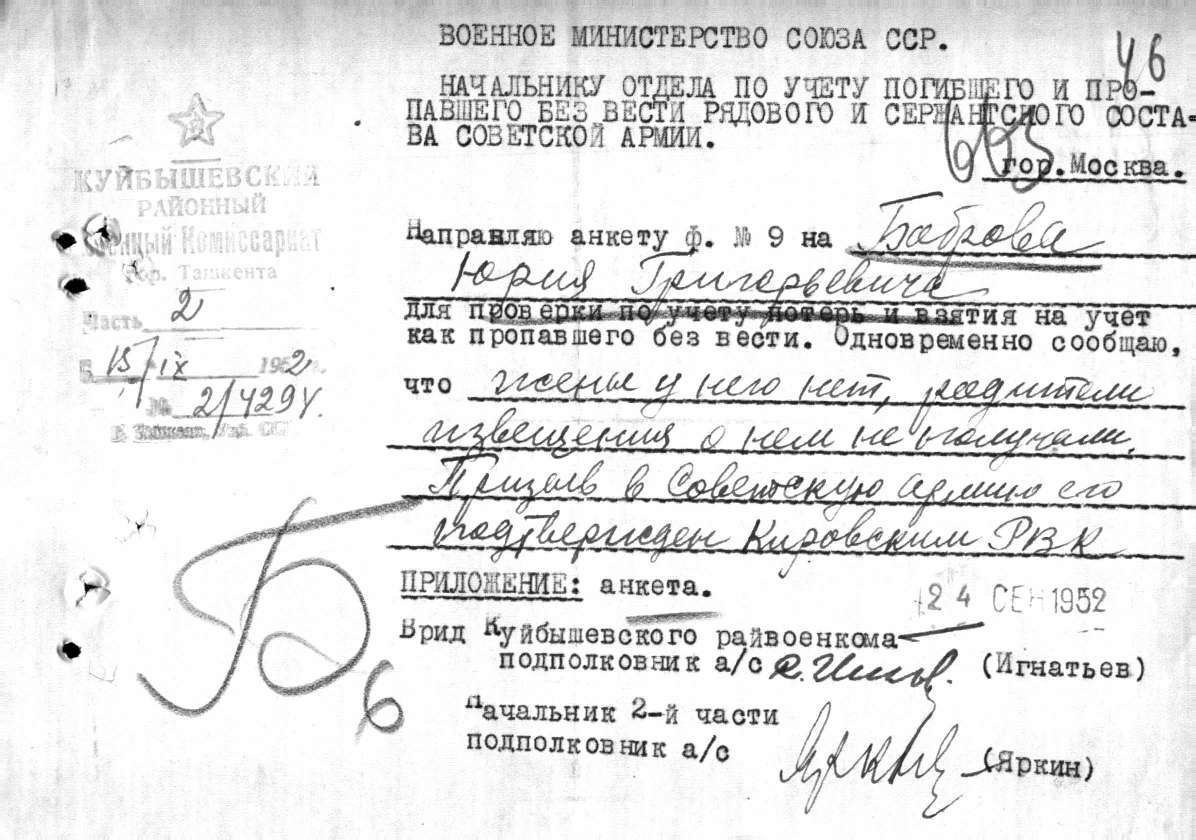 ВОЕННОЕ МИНИСТЕРСТВО СОЮЗА ССР.
46
НАЧАЛЬНИКУ ОТДЕЛА ПО УЧЕТУ ПОГИБШЕГО И ПРО-
ПАВШЕГО БЕЗ ВЕСТИ РЯДОВОГО И СЕРЖАНТСКОГО СОСТА-
ВА СОВЕТСКОЙ АРМИИ.
гор.Москва.
КУЙБЫШЕВСКИЙ
РАЙОННЫЙ
Военный Комиссариат
гор. Ташкента
Часть 2
15/IX 1952 г.
№ 2/4294.
Направляю анкету ф. № 9 на Боброва
Юрия Григорьевича
для проверки по учету потерь и взятия на учет
как пропавшего без вести. Одновременно сообщаю,
что жены у него нет, родители
извещения о нем не получали.
Призыв в Советскую армию его
подтвержден Кировским РВК
ПРИЛОЖЕНИЕ: анкета.
24 СЕН 1952
Б
6
Врид Куйбышевского райвоенкома
подполковник а/с (Игнатьев)
Начальник 2-й части
подполковник а/с Яркин (Яркин)